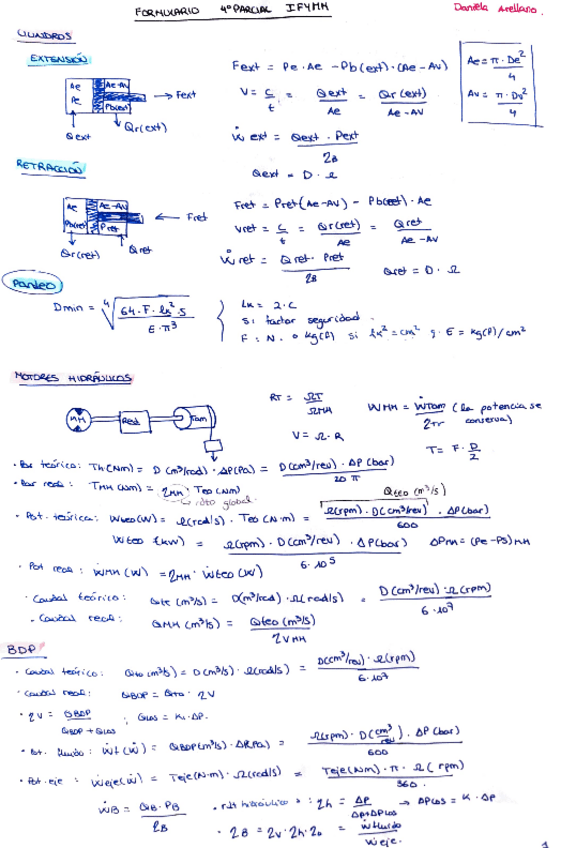 FORMULARIO 4º PARCIAL IFYMH
Daniela Arellano.
CILINDROS
EXTENSIÓN
Ae
Pe
Ae-Av
Pb(ext)
→ Fext
Qext
Qr(ext)
Fext = Pe · Ae - Pb(ext) · (Ae - Av)
V = c/t = Qext/Ae = Qr(ext)/(Ae - Av)
Ẇ ext = Qext · Pext / ηB
Qext = D · Ω
Ae = π · De²/4
Av = π · Dv²/4
RETRACCIÓN
Ae
Pb(ret)
Ae-Av
Pret
← Fret
Qr(ret)
Qret
Fret = Pret(Ae-Av) - Pb(ret) · Ae
Vret = c/t = Qr(ret)/Ae = Qret/(Ae - Av)
Ẇ ret = Qret · Pret / ηB
Qret = D · Ω
Pandeo
Dmin = ⁴√(64 · F · lk² · S / E · π³)
lk = 2 · C
Si factor seguridad.
F: N. o kg(f) si lk² = cm² y E = kg(f)/cm²
MOTORES HIDRÁULICOS
MH
Red
Tam
RT = ΩT/ΩMH
WMH = ẆTam/ηTr (la potencia se conserva)
V = Ω · R
T = F · D/2
· Par teórico: Th(Nm) = D(m³/rad) · ΔP(Pa) = D(cm³/rev) · ΔP(bar) / 20 π
· Par real: TMH(Nm) = ηMH Teo(Nm)
↳ rdto global.
Qteo (m³/s)
· Pot. teórica: Wteo(W) = Ω(rad/s) · Teo(N·m) = Ω(rpm) · D(cm³/rev) · ΔP(bar) / 600
Wteo (kW) = Ω(rpm) · D(cm³/rev) · ΔP(bar) / 6·10⁵
ΔPMH = (Pe - Ps)MH
· Pot real: ẆMH (W) = ηMH · Ẇteo(W)
· Caudal teórico: Qte (m³/s) = D(m³/rad) · Ω(rad/s) = D(cm³/rev) · Ω(rpm) / 6·10⁷
· Caudal real: QMH (m³/s) = Qteo(m³/s) / ηVMH
BDP
· Caudal teórico: Qto(m³/s) = D(cm³/s) · Ω(rad/s) = D(cm³/rev) · Ω(rpm) / 6·10⁷
· Caudal real: QBDP = Qto · ηV
· ηV = QBDP / (QBDP + Qlos) ; Qlos = K · ΔP.
· Pot. fluido: Ẇf(W) = QBDP(m³/s) · ΔP(Pa) = Ω(rpm) · D(cm³/rev) · ΔP(bar) / 600
· Pot. eje: Ẇeje(W) = Teje(N·m) · Ω(rad/s) = Teje(Nm) · π · Ω(rpm) / 360.
ẆB = QB · PB / ηB
· rdt hidráulico: ηh = ΔP / (ΔP+ΔPlos) → ΔPlos = K · ΔP
· ηB = ηv · ηh · ηo = Ẇfluido / Ẇeje.
1